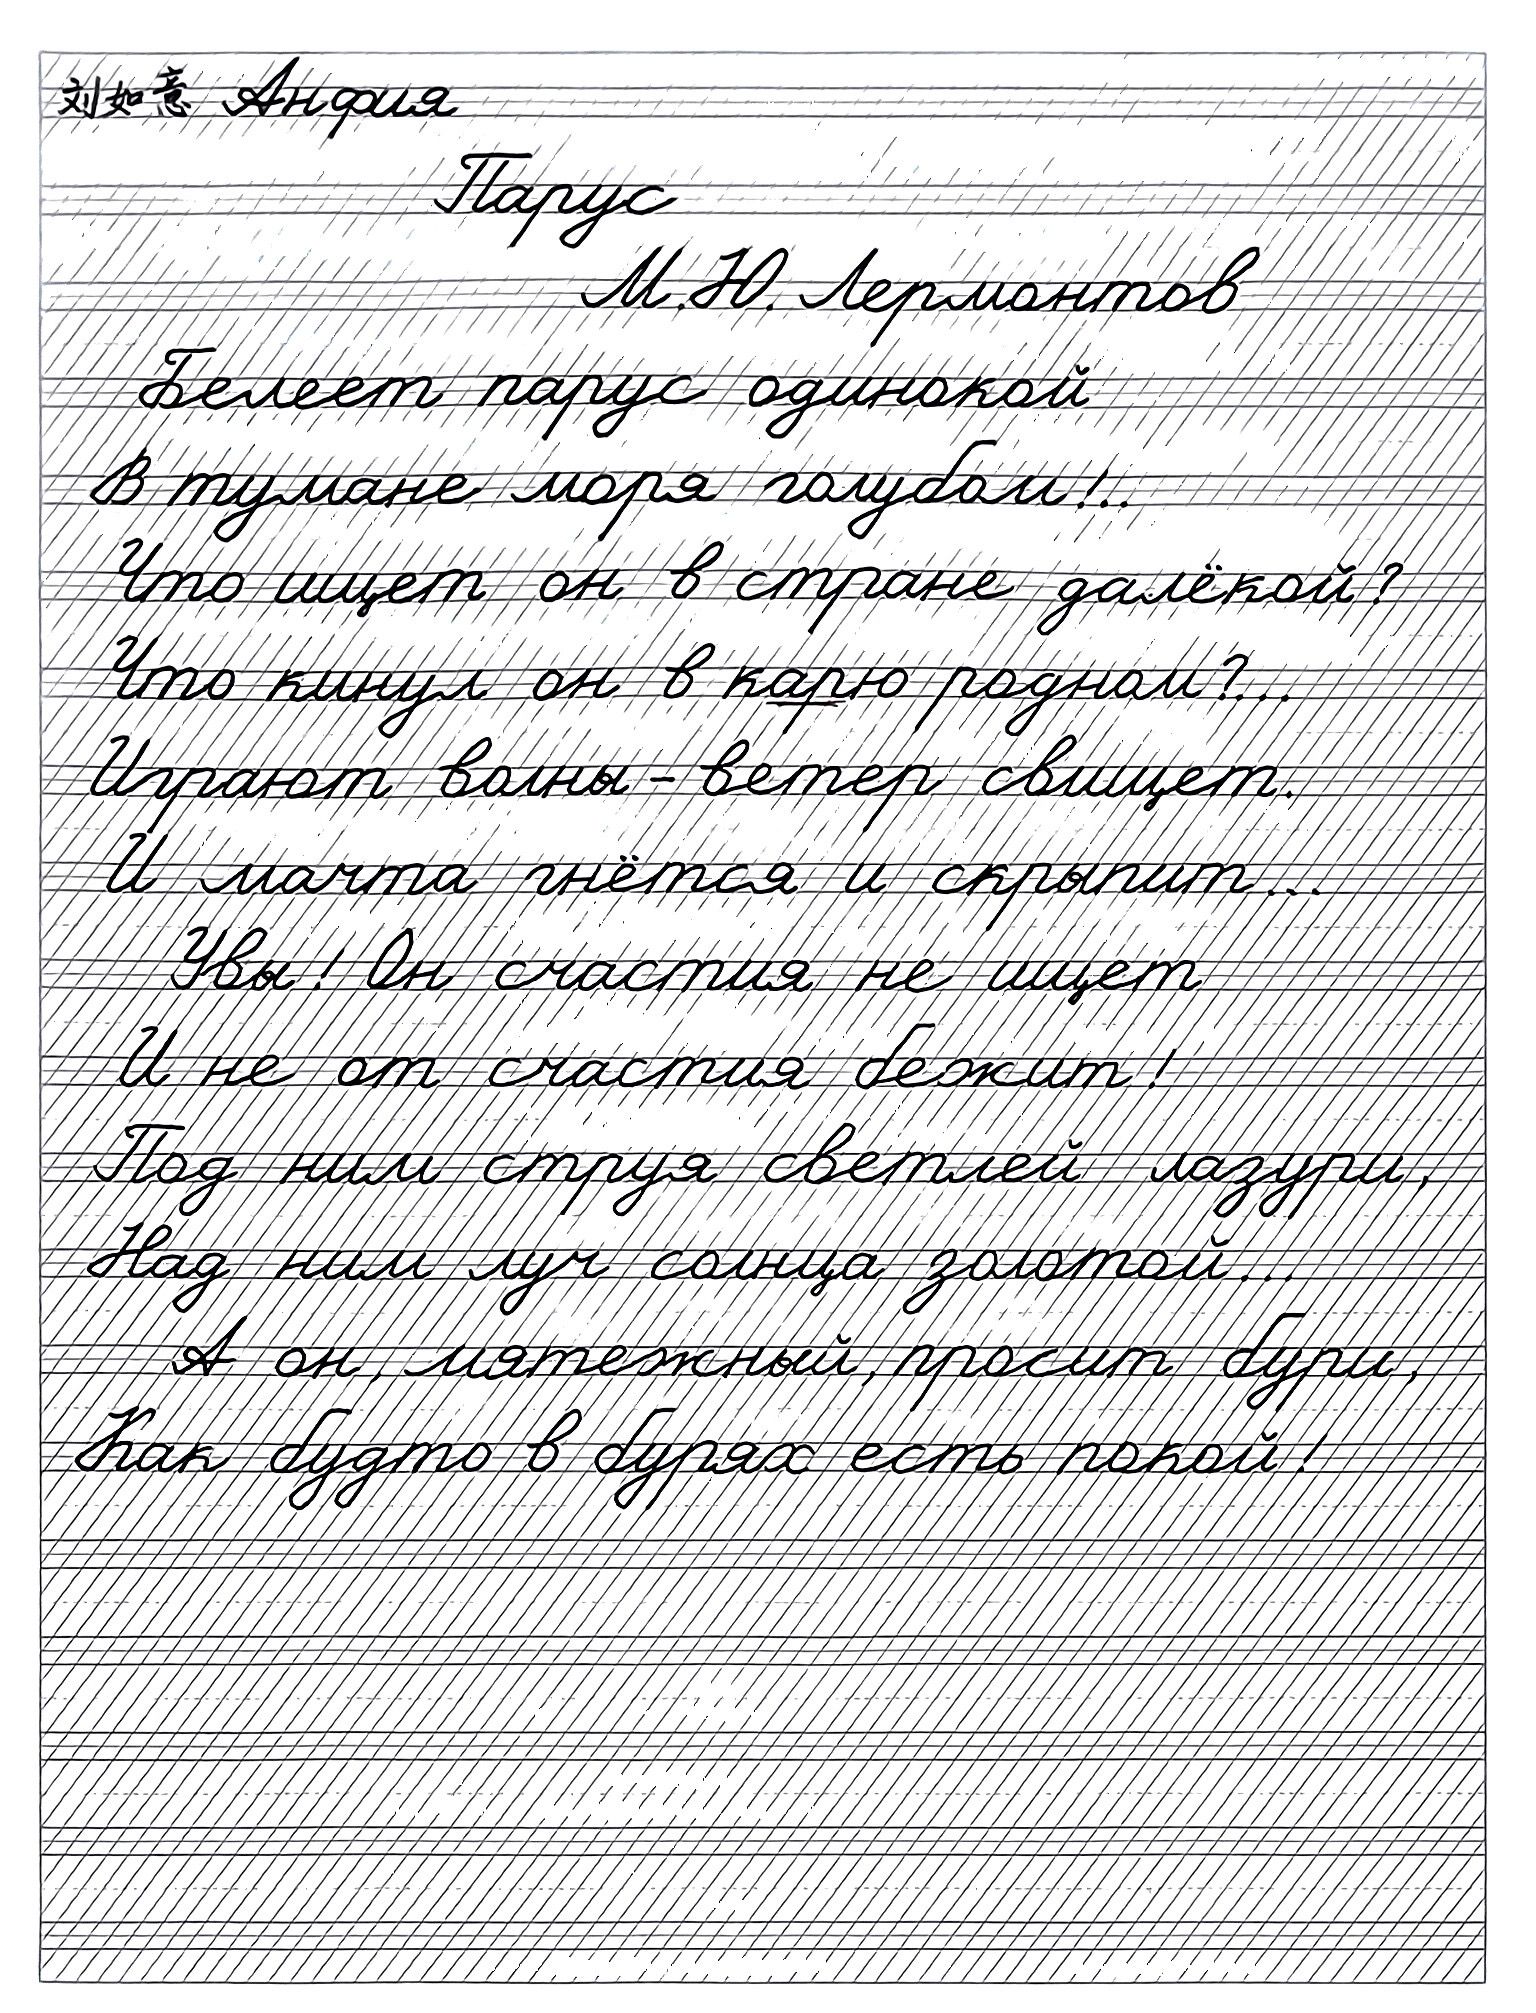 刘如意 Анфия
Парус
М.Ю. Лермонтов
Белеет парус одинокой
В тумане моря голубом!..
Что ищет он в стране далёкой?
Что кинул он в карю родном?...
Играют волны - ветер свищет.
И мачта гнётся и скрыпит...
Увы! Он счастия не ищет
И не от счастия бежит!
Под ним струя светлей лазури,
Над ним луч солнца золотой...
А он, мятежный, просит бури,
Как будто в бурях есть покой!